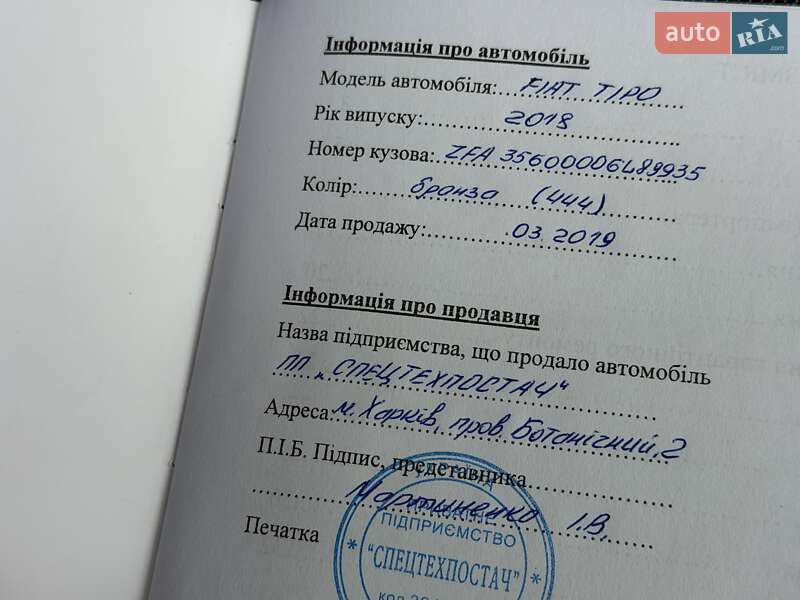 auto RIA .com
Інформація про автомобіль
Модель автомобіля: FIAT TIPO
Рік випуску: 2018
Номер кузова: ZFA 35600006L89935
Колір: бронза (444)
Дата продажу: .03.2019
Інформація про продавця
Назва підприємства, що продало автомобіль
ПП „СПЕЦТЕХПОСТАЧ"
Адреса м. Харків, пров. Ботанічний, 2
П.І.Б. Підпис, представника
Мартиненко І.В.
Печатка
ПІДПРИЄМСТВО
"СПЕЦТЕХПОСТАЧ"